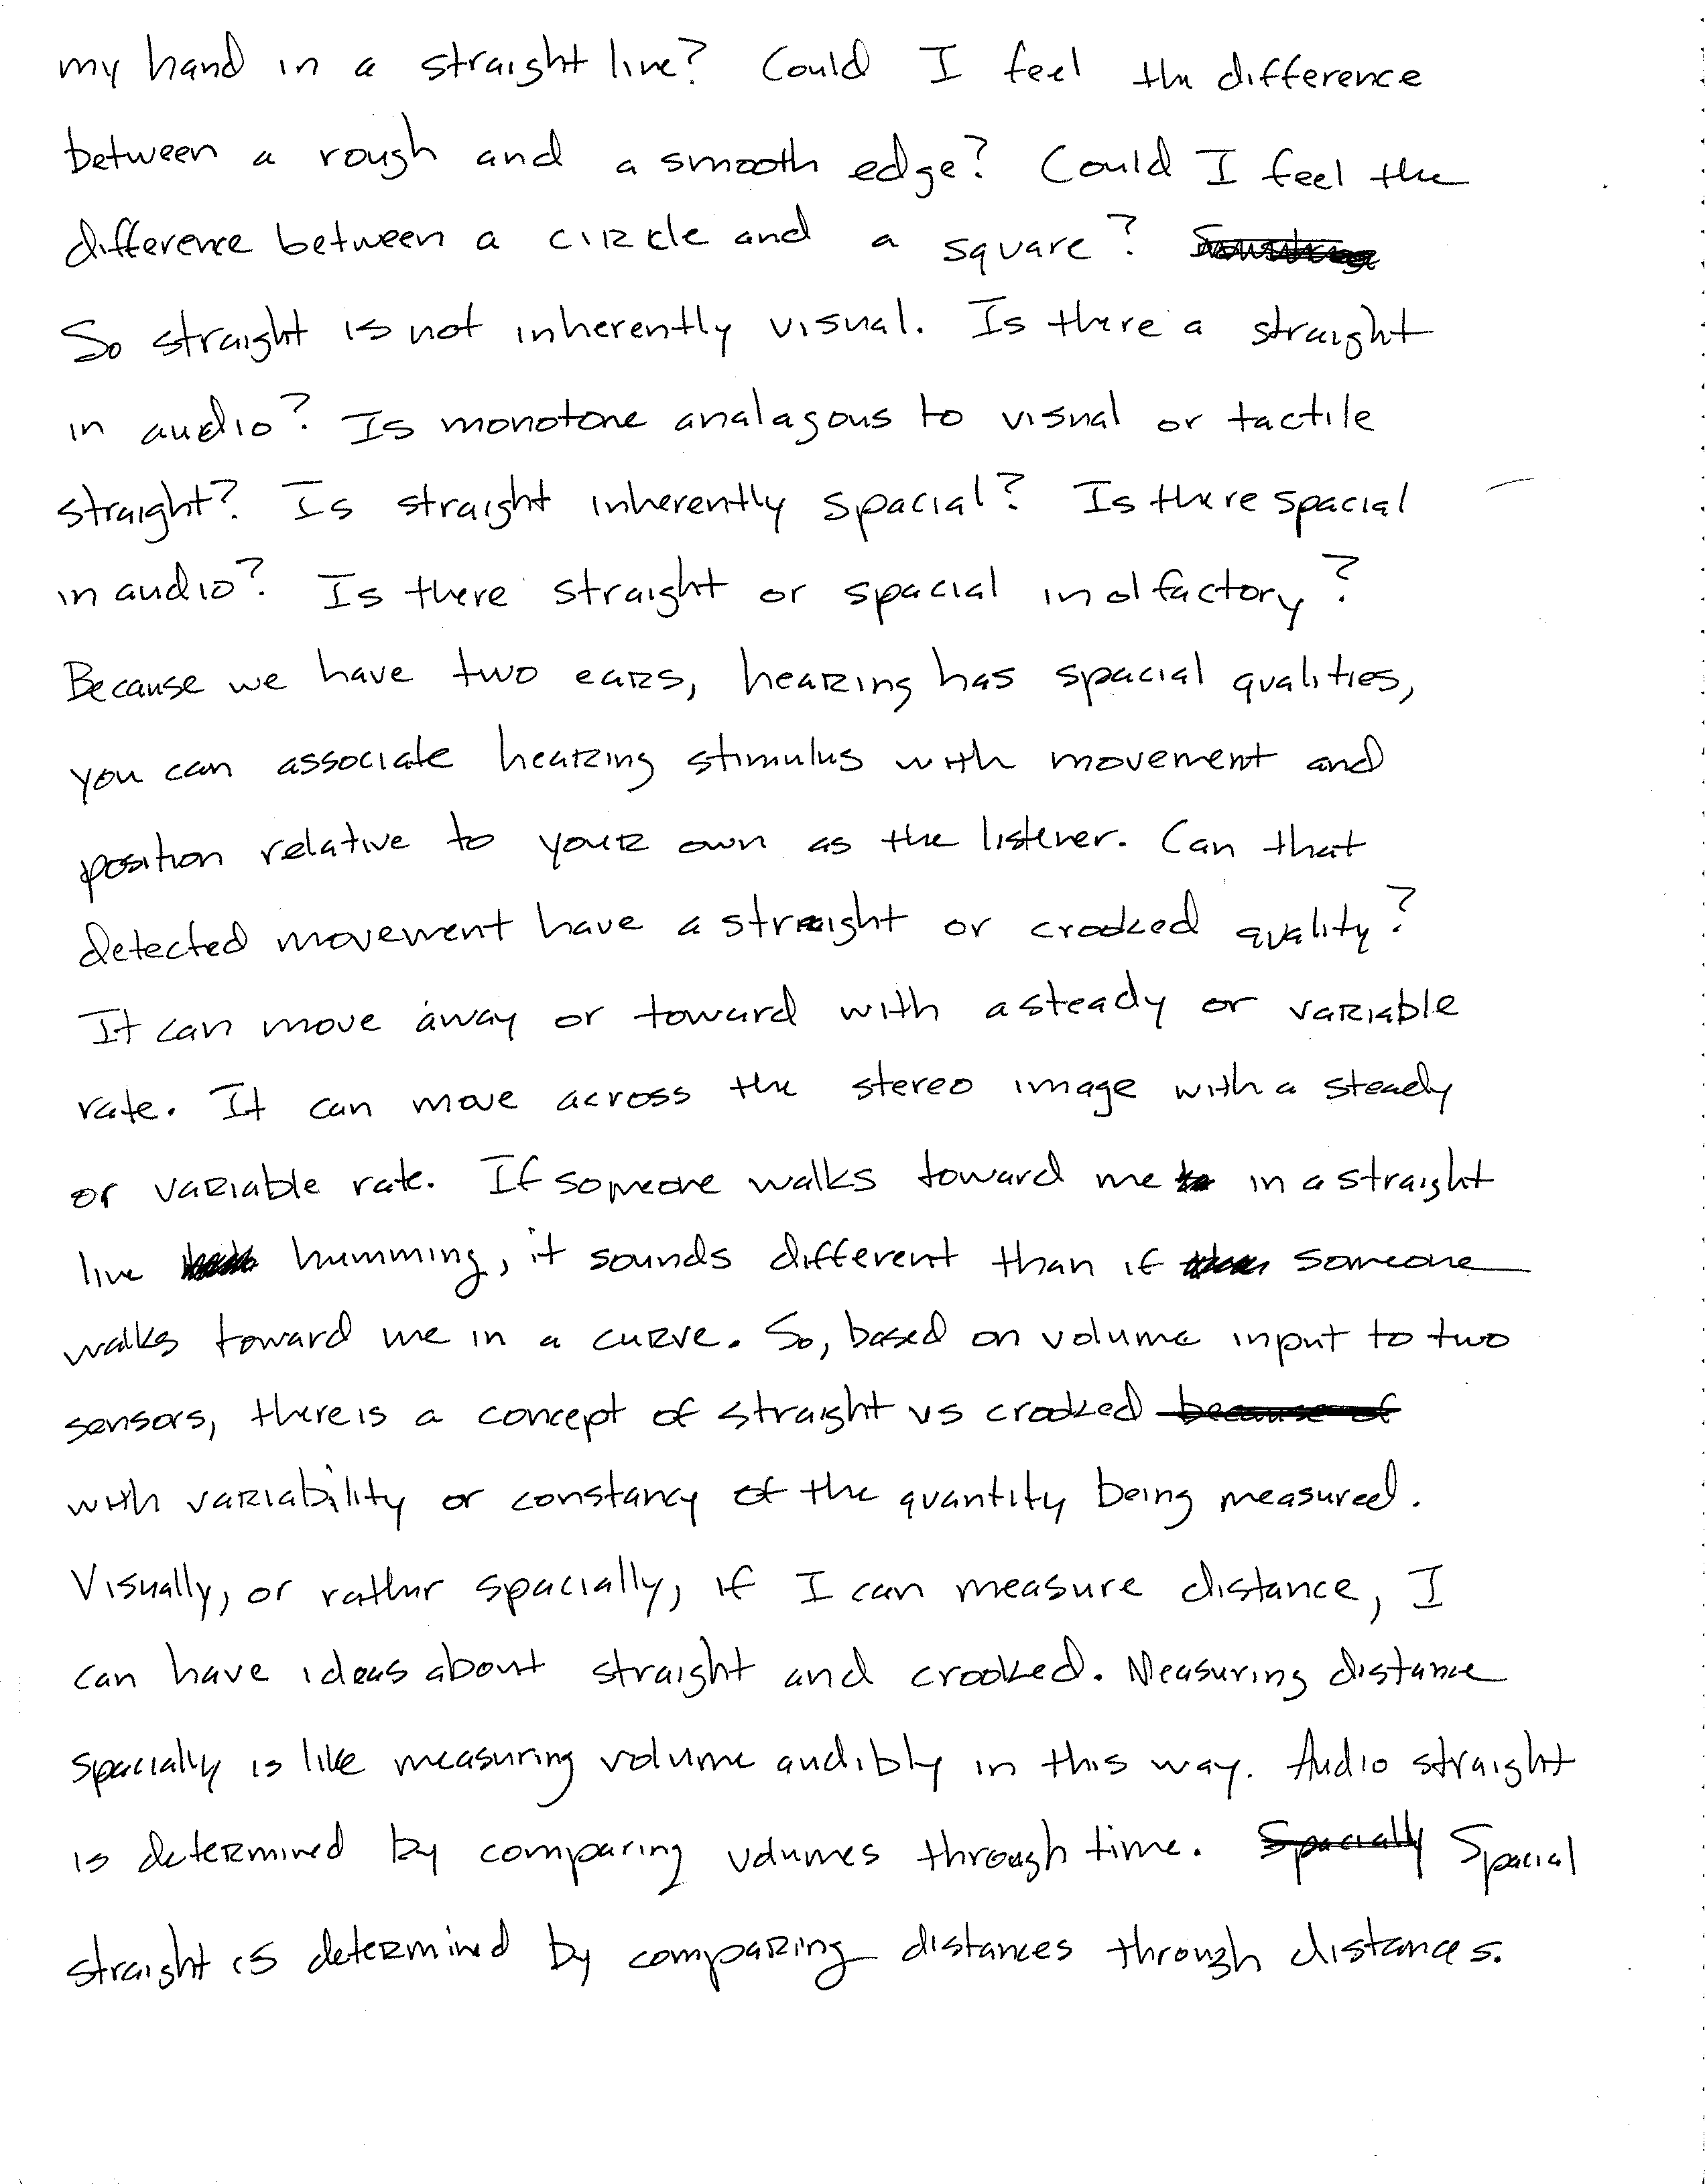 my hand in a straight line? Could I feel the difference
between a rough and a smooth edge? Could I feel the
difference between a circle and a square?
So straight is not inherently visual. Is there a straight
in audio? Is monotone analagous to visual or tactile
straight? Is straight inherently spacial? Is there spacial
in audio? Is there straight or spacial in olfactory?
Because we have two ears, hearing has spacial qualities,
you can associate hearing stimulus with movement and
position relative to your own as the listener. Can that
detected movement have a straight or crooked quality?
It can move away or toward with a steady or variable
rate. It can move across the stereo image with a steady
or variable rate. If someone walks toward me in a straight
line humming, it sounds different than if someone
walks toward me in a curve. So, based on volume input to two
sensors, there is a concept of straight vs crooked because of
with variability or constancy of the quantity being measured.
Visually, or rather spacially, if I can measure distance, I
can have ideas about straight and crooked. Measuring distance
spacially is like measuring volume audibly in this way. Audio straight
is determined by comparing volumes through time. Spacially Spacial
straight is determined by comparing distances through distances.